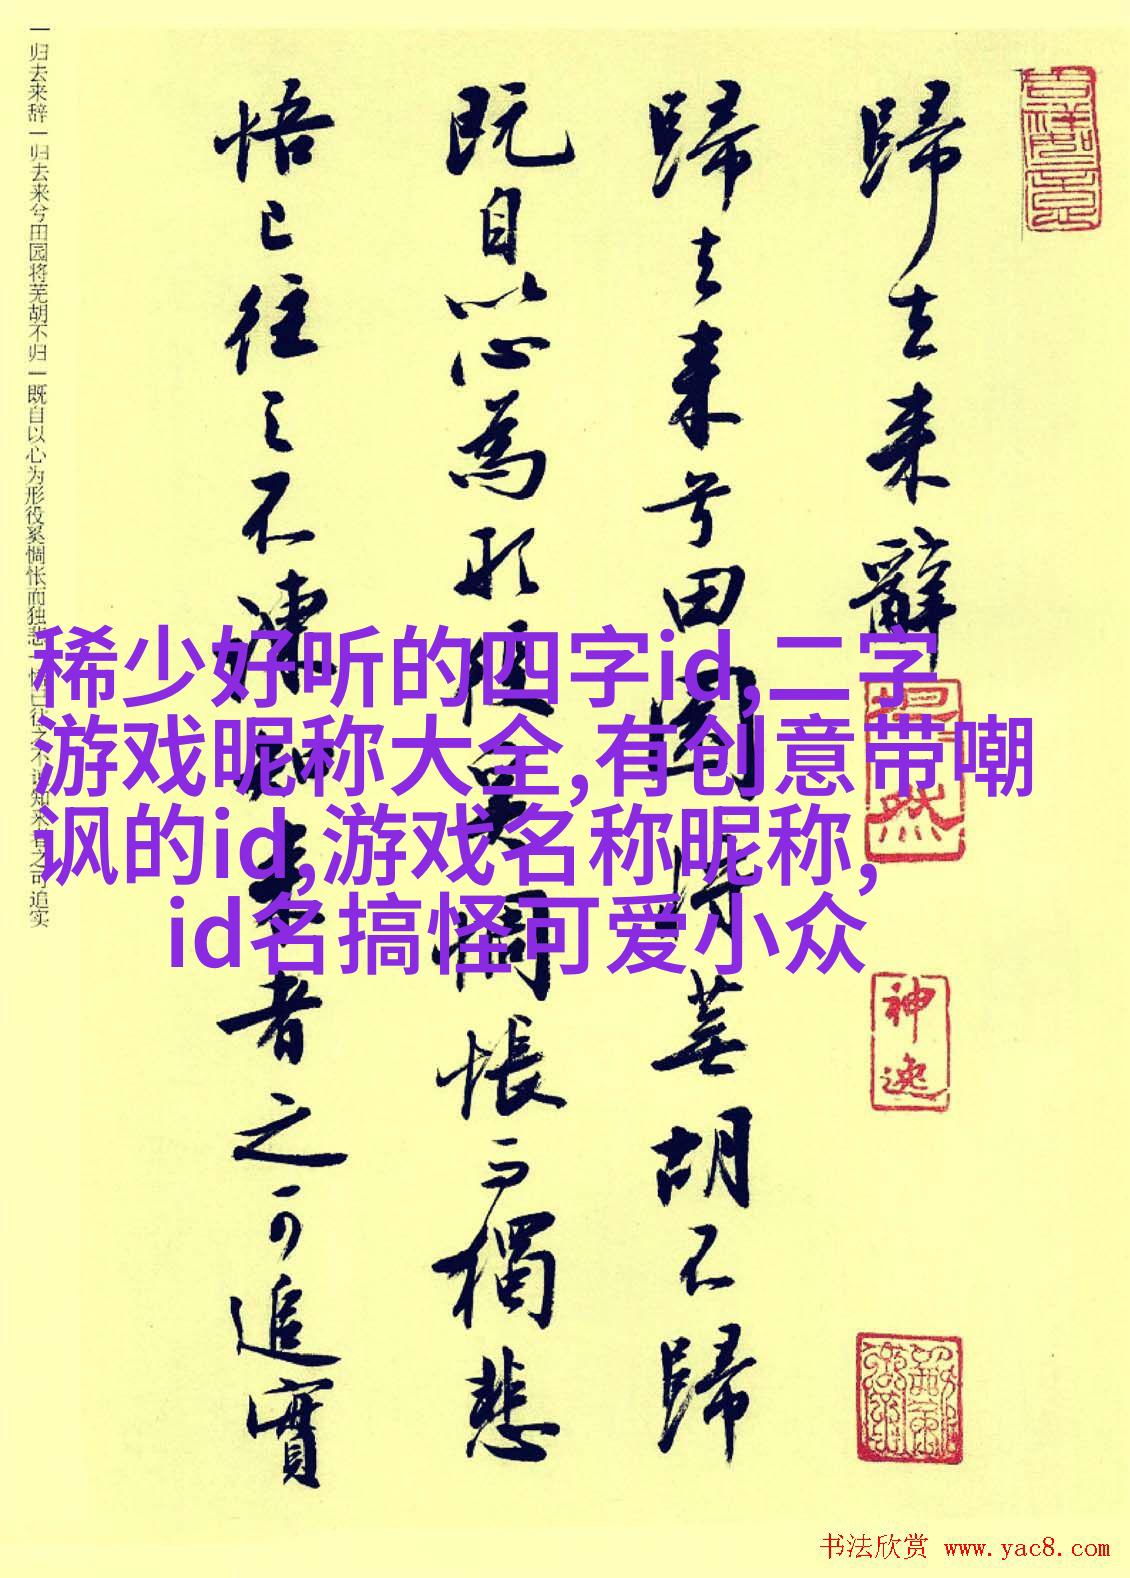 歸去来辭
歸去来兮田園将蕪胡不歸
既自以心為形役奚惆悵而獨悲
悟已往之不諫知来者之可追實
一归去来辞一归去来兮田园将芜胡不归一既自以心为形役奚惆怅而独悲一悟已往之不谏知来者之可追实
稀少好听的四字id,二字
游戏昵称大全,有创意带嘲
讽的id,游戏名称昵称,
id名搞怪可爱小众
神逸
书法欣赏 www.yac8.com